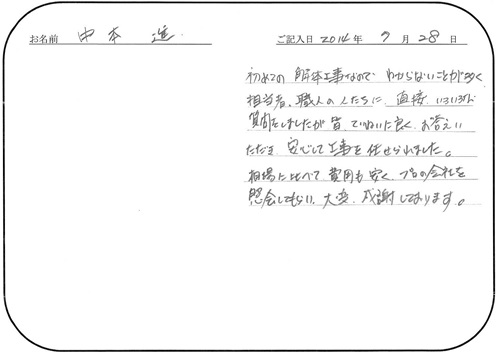 お名前 中本 進 ご記入日 2014年 9月 28日
初めての解体工事なので わからないことが多く
担当者、職人の人たちに、直接、いろいろな
質問をしましたが皆、ていねいに良く、お答えい
ただき 安心して工事を任せられました。
相場に比べて費用も安く、プロの会社を
照会してもらい、大変、感謝しております。